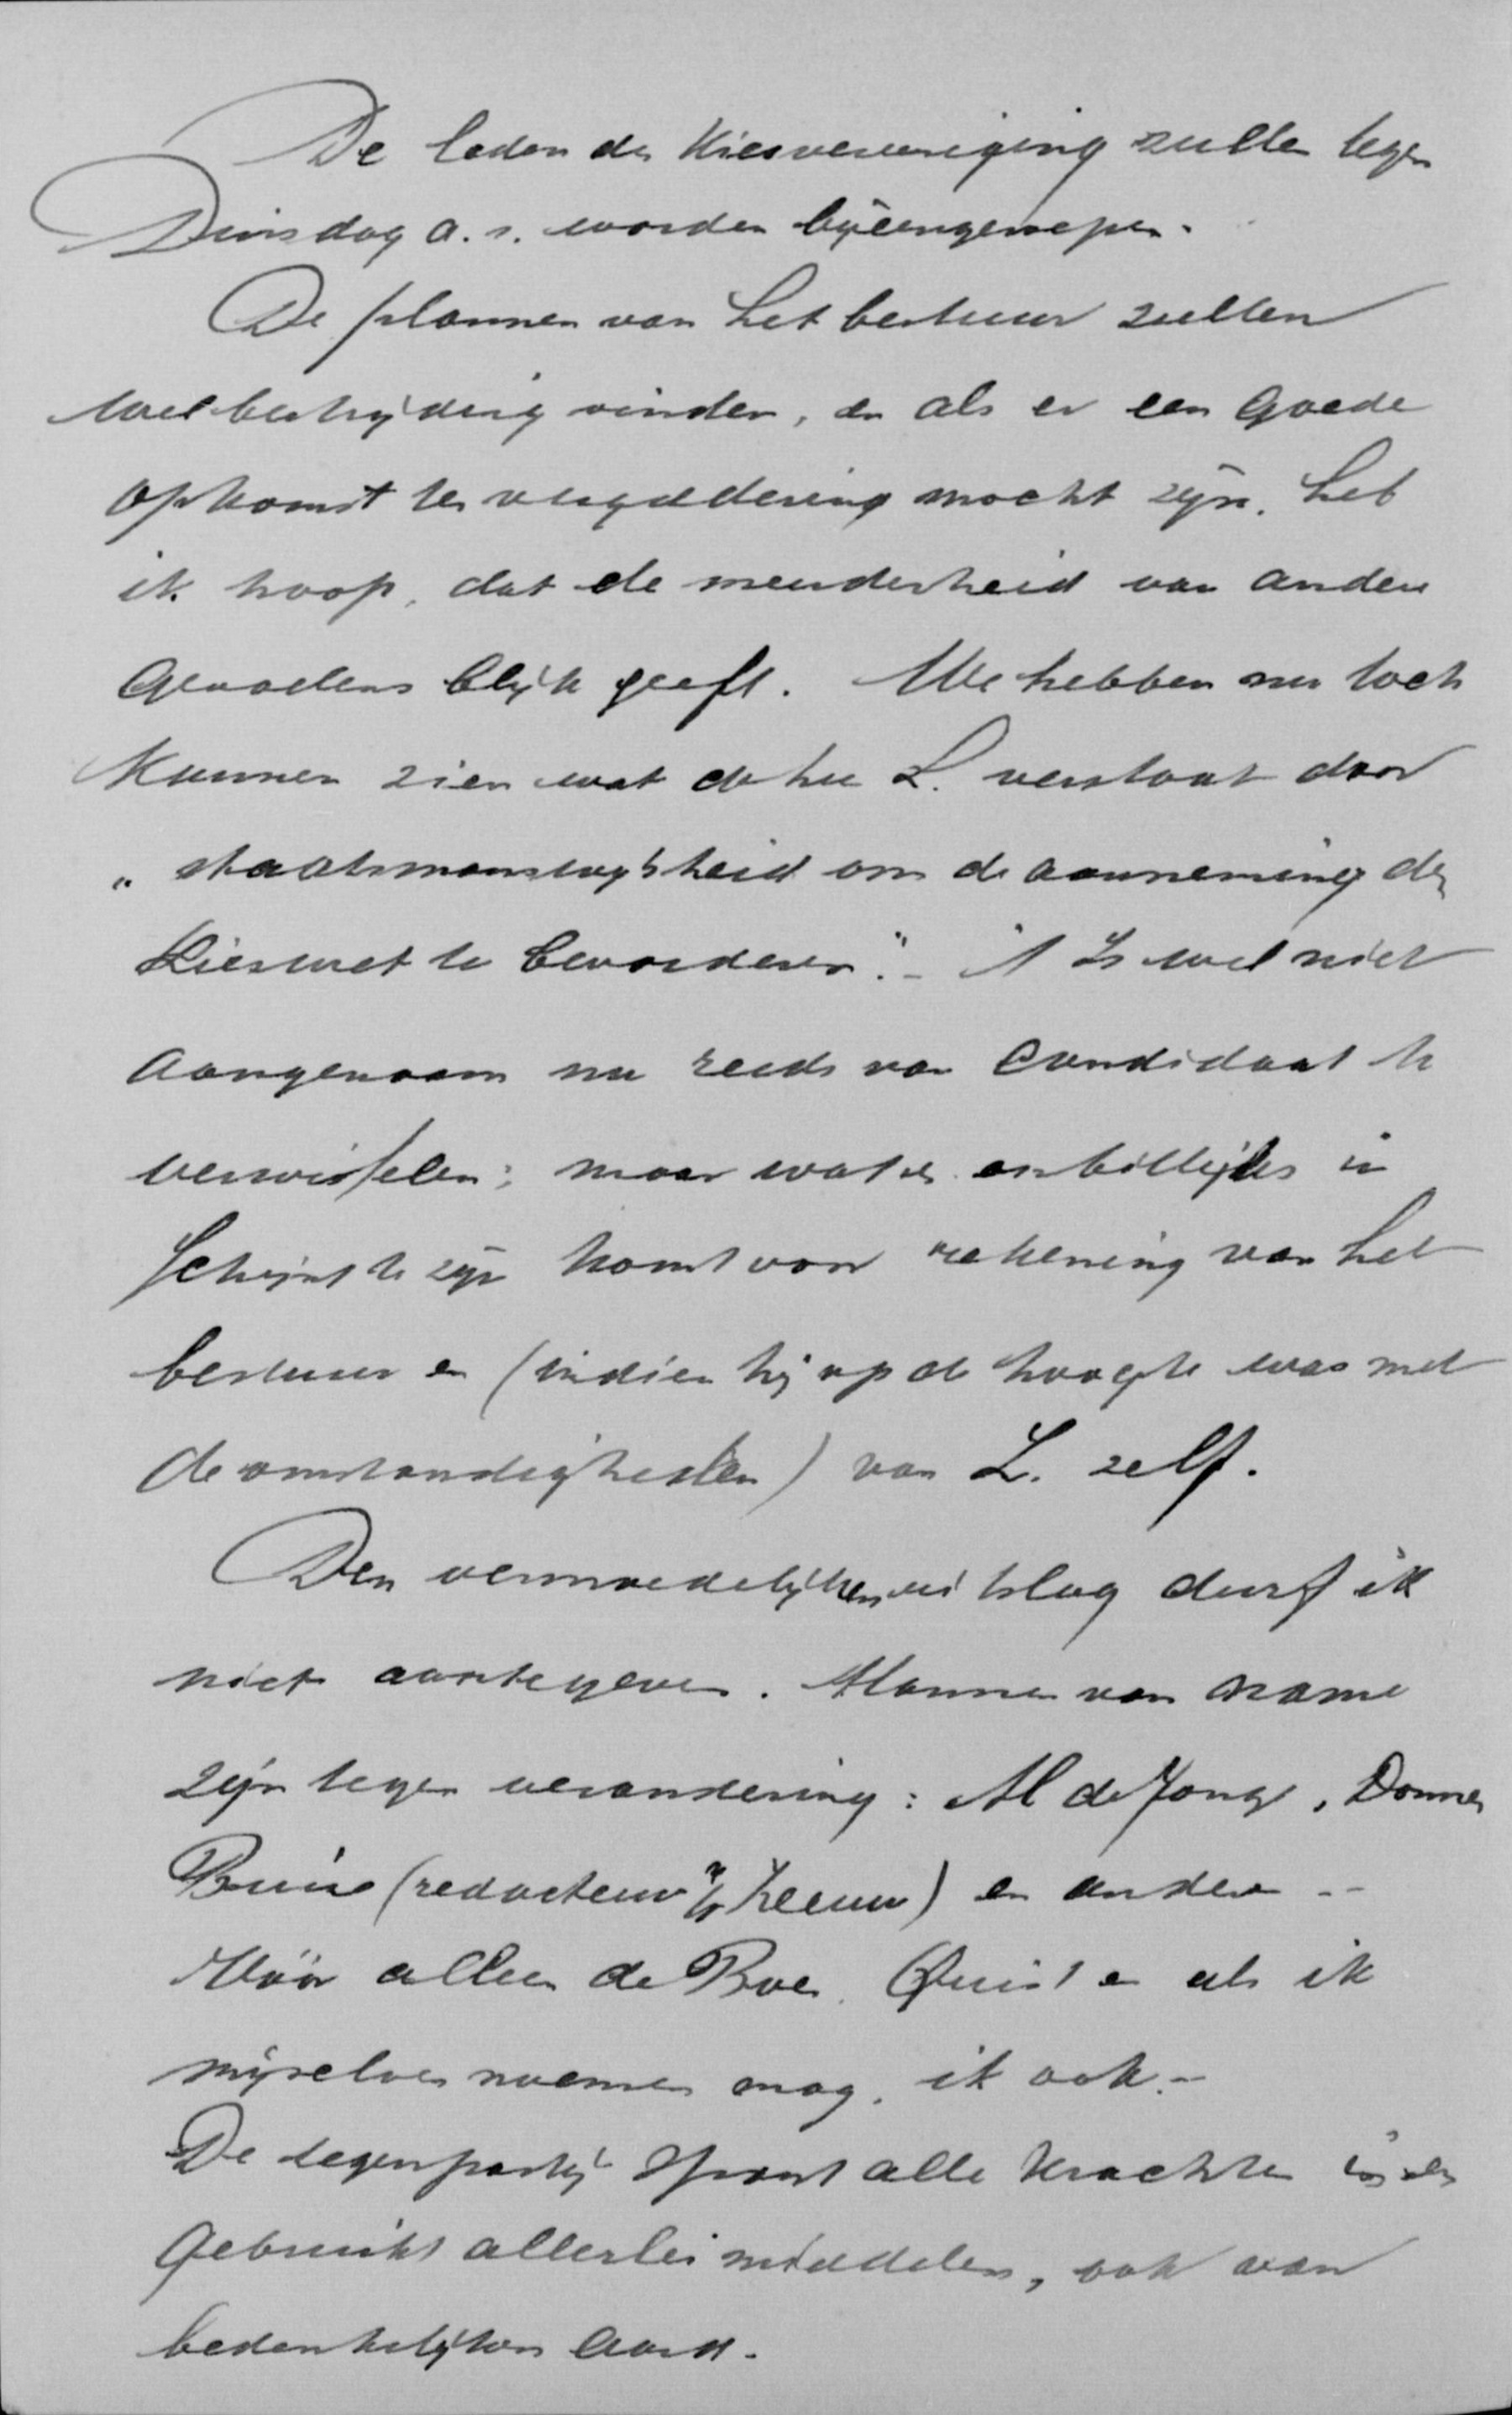 De leden der Kiesvereeniging zullen tegen
Dinsdag a.s. worden bijeengeroepen.
De plannen van het bestuur zullen
wel bestrijding vinden, en als er een goede
opkomst ter vergadering mocht zijn, heb
ik hoop, dat de meerderheid van andere
gevoelens blijk geeft. We hebben nu toch
kunnen zien wat de heer L. verstaat door
„staatsmanswijsheid om de aanneming der
Kieswet te bevorderen". – 't Is wel niet
aangenaam nu reeds van candidaat te
verwisselen; maar wat er onbillijks in
schijnt te zijn komt voor rekening van het
bestuur en (indien hij op de hoogte was met
de omstandigheden) van L. zelf.
Den vermoedelijken uitslag durf ik
niet aantegeven. Mannen van name
zijn tegen verandering: M de Jonge, Donner
Buis (redacteur v/d Zeeuw) en andere --
Vóór alleen de Boer, Quist en als ik
mijzelven noemen mag, ik ook.–
De tegenpartij spant alle krachten in en
gebruikt allerlei middelen, ook van
bedenkelijken aard.